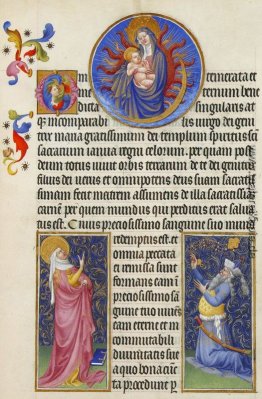 O intemerata et
in eternum bene
dicta singularis at
q; incomparabilis uirgo dei geni
trix maria gratissimum dei templum spiritus sancti
sacrarium ianua regni celorum. per quam post
deum totus uiuit orbis terrarum de te dei genitrix
filius dei uerus et omnipotens deus suam sacratissi
mam fecit matrem assumens de illa sacratissi
carne per quem mundus qui perditus erat salua
tus est. Cuius preciosissimo sanguine suo mund
redemptus est. et
omnia peccata
remissa sunt
formans eam
preciosissimo sa
guine suo
eam eterne et in
commutabili
diuinitatis sue
a quo bona cunc
ta procedunt